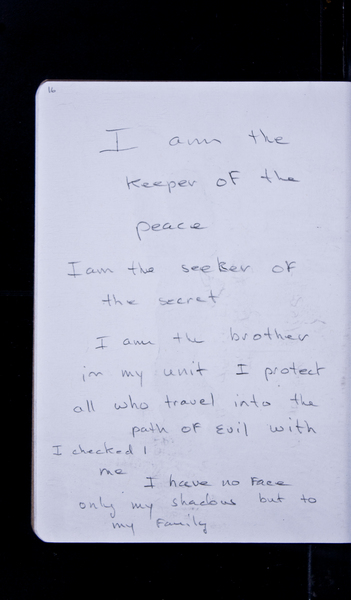 16
I am the
Keeper of the
peace
I am the seeker of
the secret
I am the brother
in my unit I protect
all who travel into the
path of Evil with
I checked I
me
I have no Face
only my shadows but to
my Family